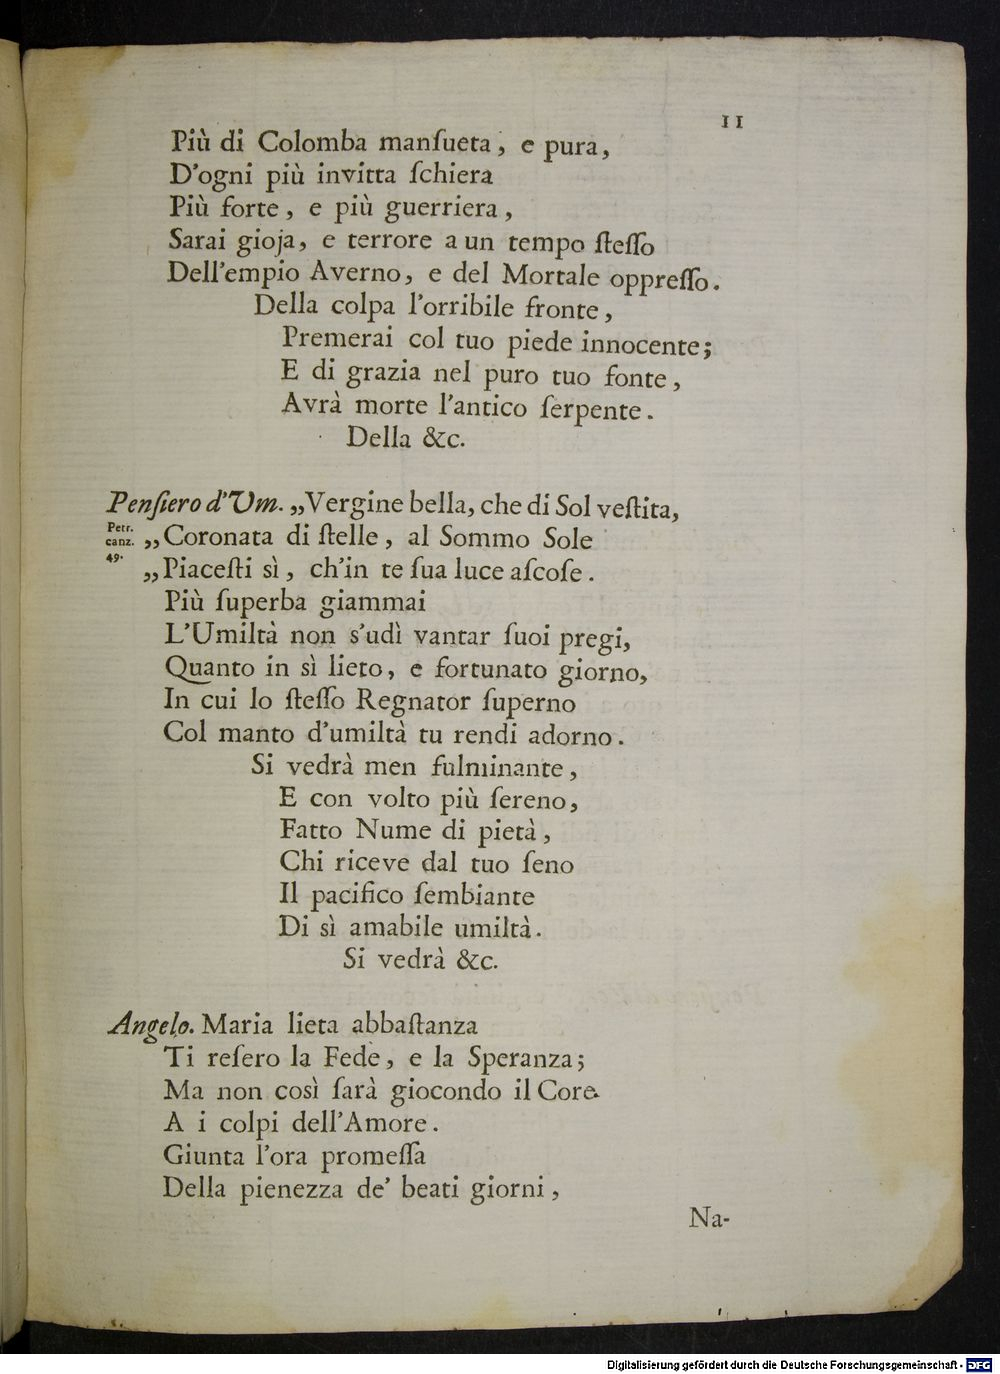 11
Più di Colomba manſueta, e pura,
D'ogni più invitta ſchiera
Più forte, e più guerriera,
Sarai gioja, e terrore a un tempo ſteſſo
Dell'empio Averno, e del Mortale oppreſſo.
Della colpa l'orribile fronte,
Premerai col tuo piede innocente;
E di grazia nel puro tuo fonte,
Avrà morte l'antico ſerpente.
Della &c.
Penſiero d'Um. „Vergine bella, che di Sol veſtita,
Petr. canz. 49. „Coronata di ſtelle, al Sommo Sole
„Piaceſti sì, ch'in te ſua luce aſcoſe.
Più ſuperba giammai
L'Umiltà non s'udì vantar ſuoi pregi,
Quanto in sì lieto, e fortunato giorno,
In cui lo ſteſſo Regnator ſuperno
Col manto d'umiltà tu rendi adorno.
Si vedrà men fulminante,
E con volto più ſereno,
Fatto Nume di pietà,
Chi riceve dal tuo ſeno
Il pacifico ſembiante
Di sì amabile umiltà.
Si vedrà &c.
Angelo. Maria lieta abbaſtanza
Ti reſero la Fede, e la Speranza;
Ma non così ſarà giocondo il Core
A i colpi dell'Amore.
Giunta l'ora promeſſa
Della pienezza de' beati giorni,
Na-
Digitalisierung gefördert durch die Deutsche Forschungsgemeinschaft - DFG